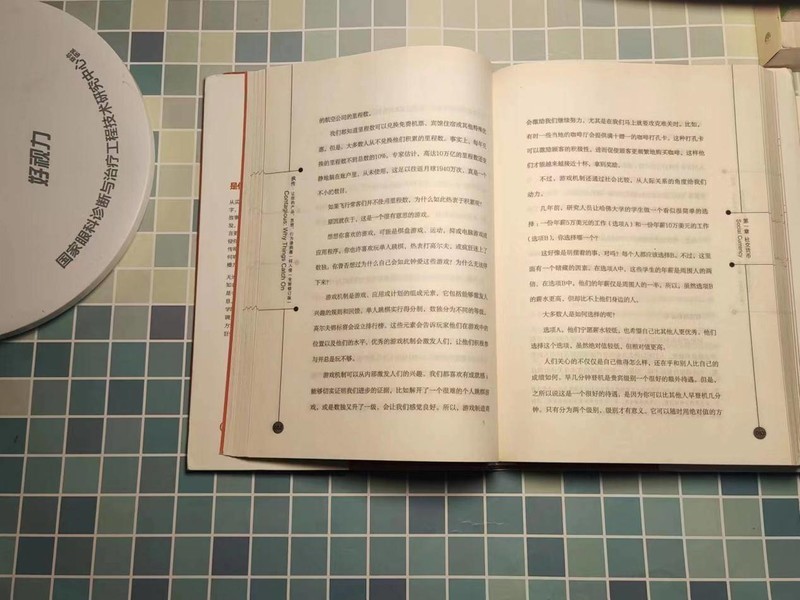 好视力
国家眼科诊断与治疗工程技术研究中心
的航空公司的里程数。
我们都知道里程数可以兑换免费机票、宾馆住宿或其他特殊优
惠。但是，大多数人从不兑换他们积累的里程数。事实上，每年兑
换的里程数不到总数的10%。专家估计，高达10万亿的里程数还安
静地躺在账户里，从未使用。这足以往返月球1940万次，真是一个
不小的数目。
如果飞行常客们并不使点里程数，为什么如此热衷于积累呢？
原因就在于，这是一个很有意思的游戏。
想想你喜欢的游戏，可能是棋盘游戏、运动，抑或电脑游戏或
应用程序。你也许喜欢玩单人跳棋，热衷打高尔夫，或疯狂迷上了
数独。你曾否想过为什么自己会如此钟爱这些游戏？为什么无法停
下来？
游戏机制是游戏、应用或计划的组成元素，它包括能够激发人
兴趣的规则和回馈。单人跳棋实行得分制，数独分为不同的等级，
高尔夫锦标赛会设立排行榜。这些元素会告诉玩家他们在游戏中的
位置以及他们的水平。优秀的游戏机制会激发人们，让他们积极参
与并总是玩不够。
游戏机制可以从内部激发人们的兴趣。我们都喜欢有成就感，
能够切实证明我们进步的证据，比如解开了一个很难的个人跳棋游
戏，或是数独又升了一级，会让我们感觉良好。所以，游戏制造商
疯传
Contagious: Why Things Catch On
会激励我们继续努力，尤其是在我们马上就要攻克难关时。比如，
有时一些当地的咖啡厅会提供满十赠一的咖啡打孔卡。这种打孔卡
可以激励顾客的积极性，进而促使顾客更频繁地购买咖啡。这样他
们才能越来越接近十杯，拿到奖励。
不过，游戏机制还通过社会比较，从人际关系的角度给我们
动力。
几年前，研究人员让哈佛大学的学生做一个看似很简单的选
择：一份年薪5万美元的工作（选项A）和一份年薪10万美元的工作
（选项B），你选择哪一个？
这好像是明摆着的事，不过吗？每个人都应该选择B。不过，这里
面有一个蹊跷的因素：在选项A中，这些学生的年薪是周围人的两
倍，在选项B中，他们的年薪仅是周围人的一半。所以，虽然选项B
的薪水更高，但却比不上他们身边的人。
大多数人是如何选择的呢？
选项A。他们宁愿薪水较低，也希望自己比其他人更优秀。他们
选择这个选项，虽然绝对值较低，但相对值更高。
人们关心的不仅仅是自己做得怎么样，还在乎和别人比自己的
成绩如何。早几分钟登机是贵宾级别一个很好的额外待遇。但是，
之所以说这是一个很好的待遇，是因为你可以比其他人早登机几分
钟。只有分为两个级别，级别才有意义。它可以随时用绝对值的方
第一章 社交货币
Social Currency